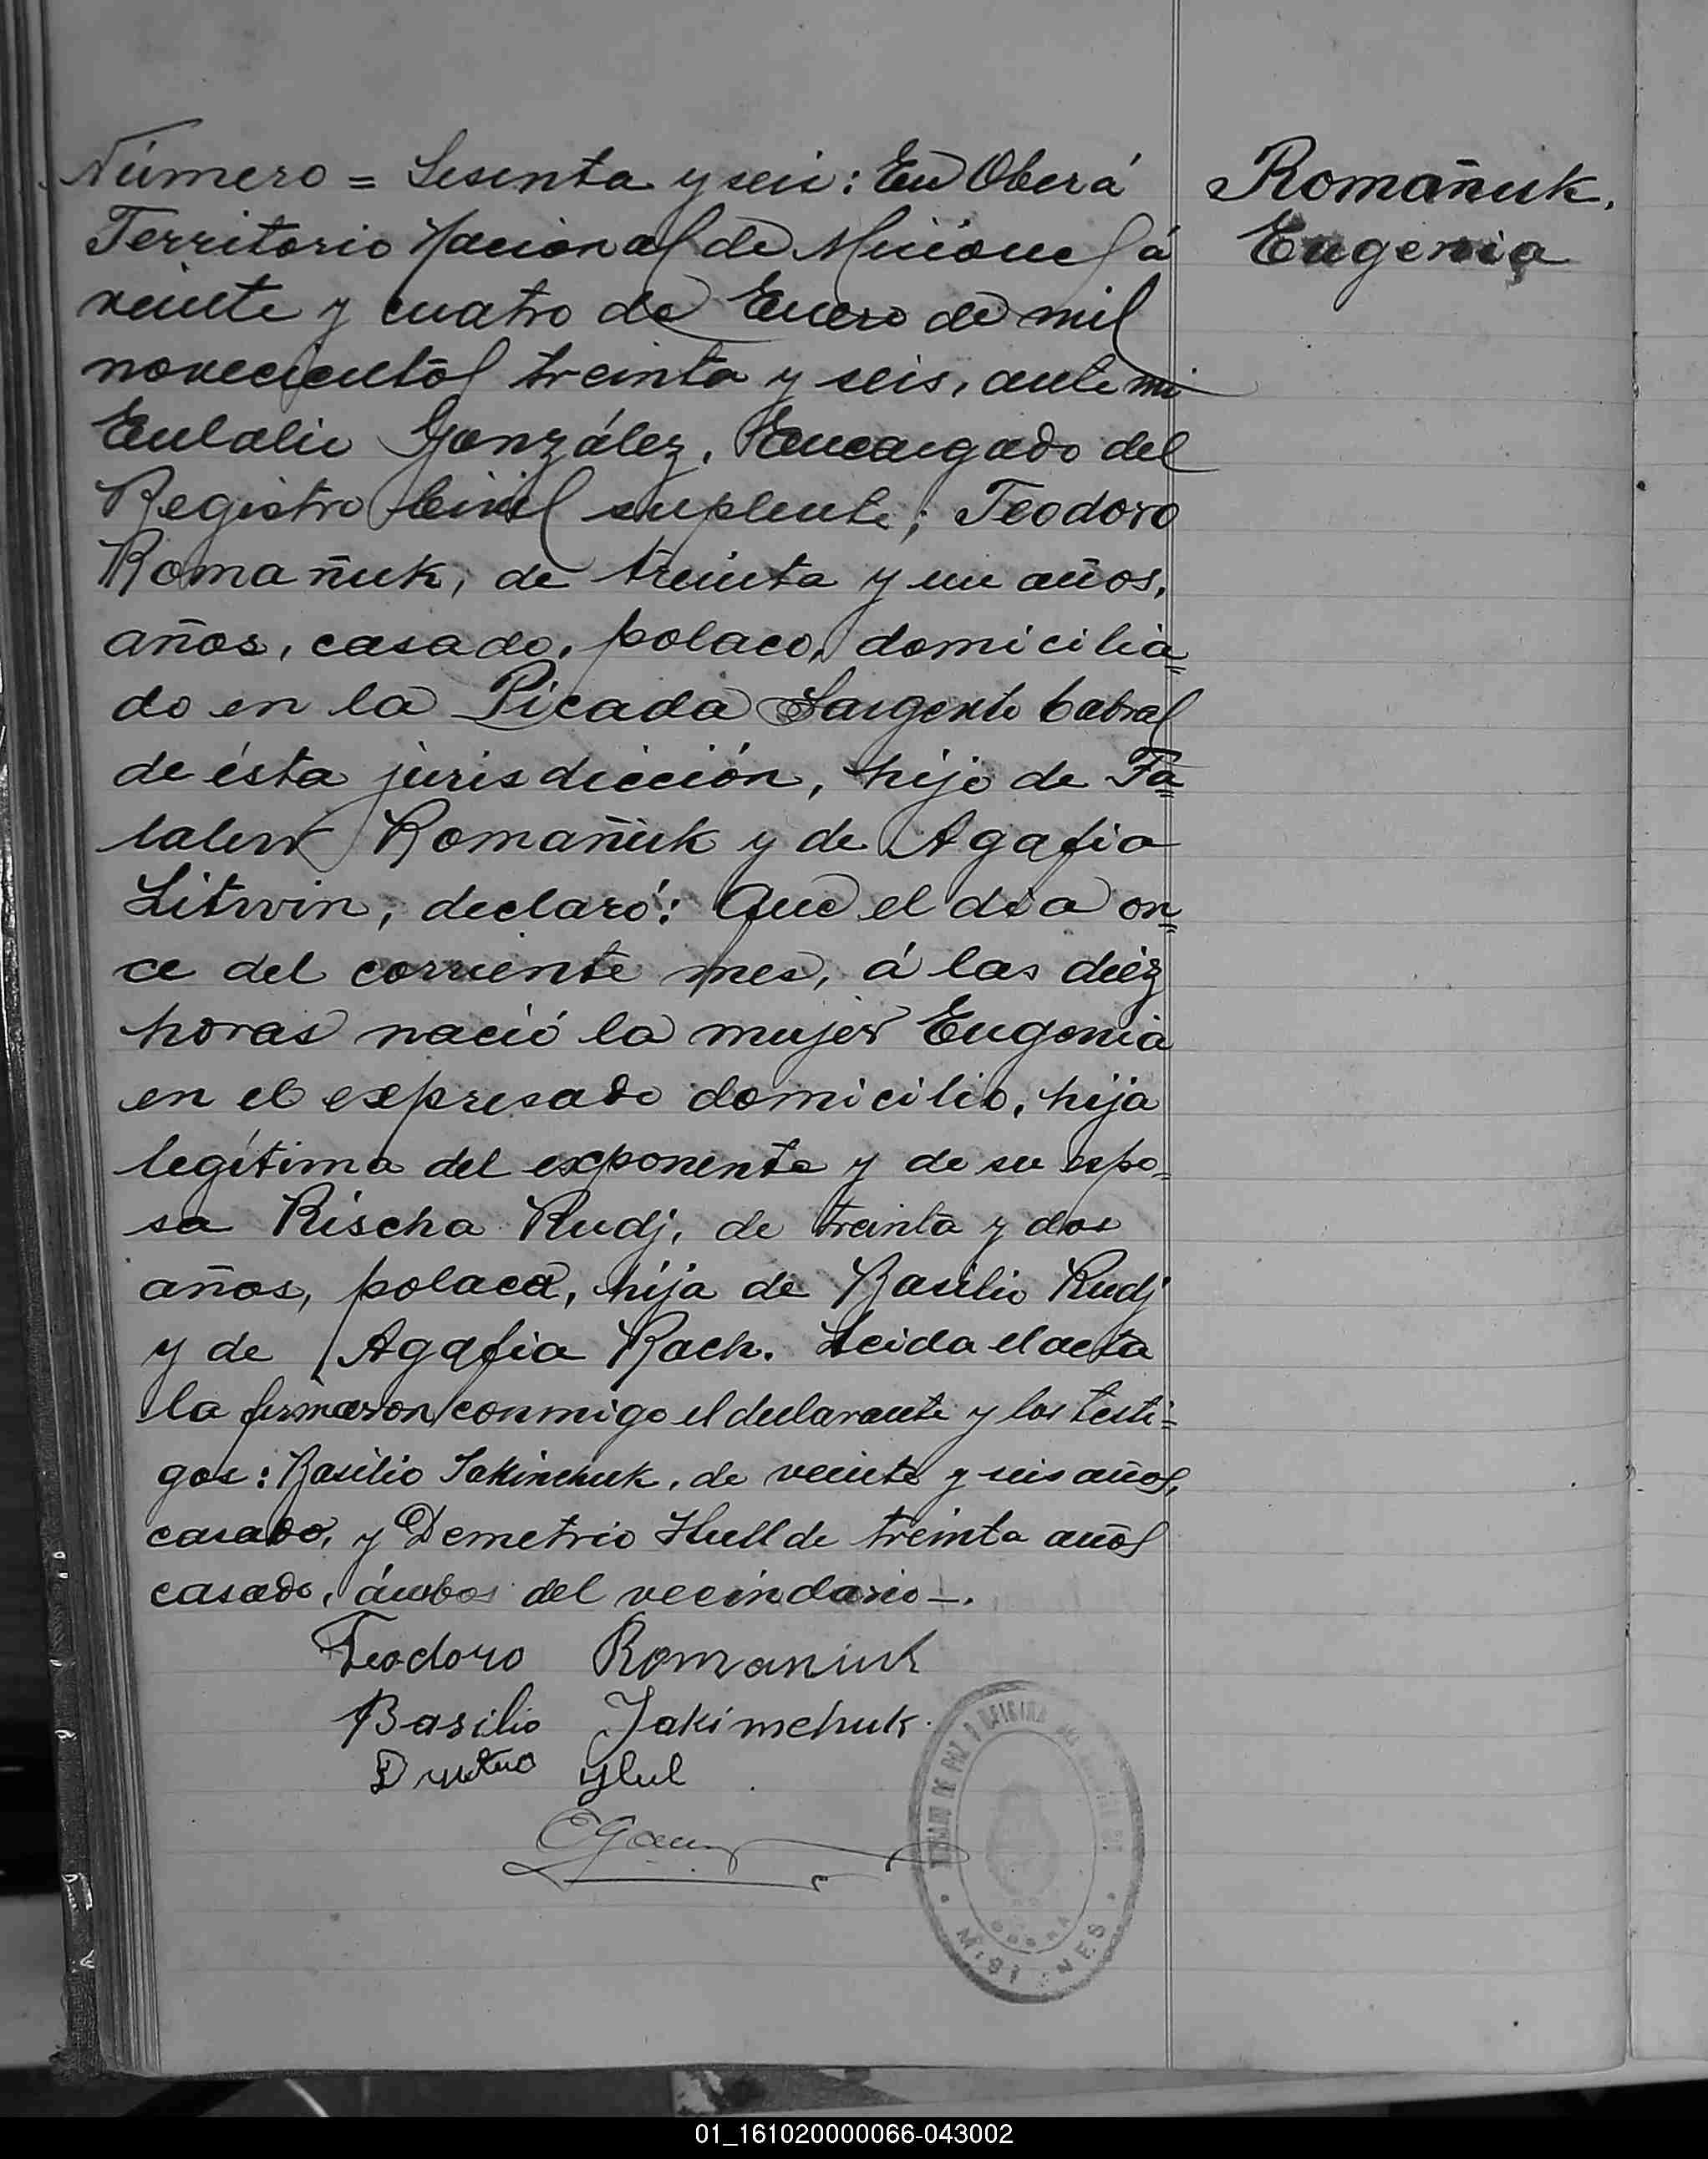 Número = Sesenta y seis: En Oberá
Territorio Nacional de Misiones á
veinte y cuatro de Enero de mil
novecientos treinta y seis, ante mi
Eulalio González, Encargado del
Registro Civil suplente; Teodoro
Romañuk, de treinta y un años,
años, casado, polaco, domicilia=
do en la Picada Sargento Cabral
de ésta jurisdicción, hijo de Fa=
Romañuk y de Agafia
Litwin, declaró: Que el día on=
ce del corriente mes, á las diéz
horas nació la mujer Eugenia
en el expresado domicilio, hija
legítima del exponente y de su espo=
sa Rischa Rudj, de treinta y dos
años, polaca, hija de Basilio Rudj
y de Agafia Rach. Leida el acta
la firmaron conmigo el declarante y los testi=
gos: Basilio Jakimchuk, de veinte y seis años,
casado, y Demetrio Hull de treinta años
casado, ámbos del vecindario—.
Teodoro Romaniuk
Basilio Jakimchuk.
MISIONES
Romañuk,
Eugenia
01_161020000066-043002